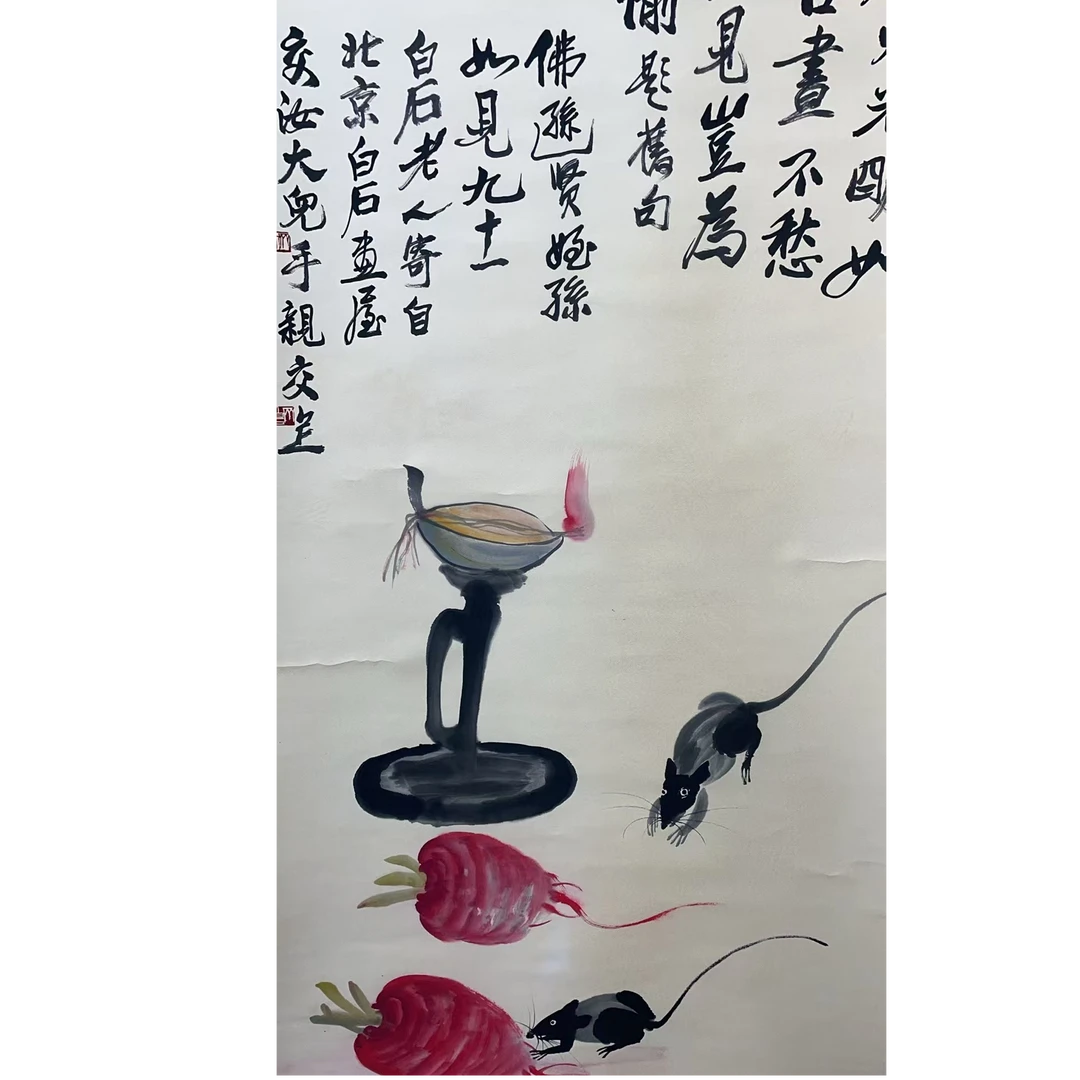 光明如
白晝不愁
見豈為
偷題舊句
佛遜賢姪孫
如見九十一
白石老人寄自
北京白石畫屋
交汝大兒手親交